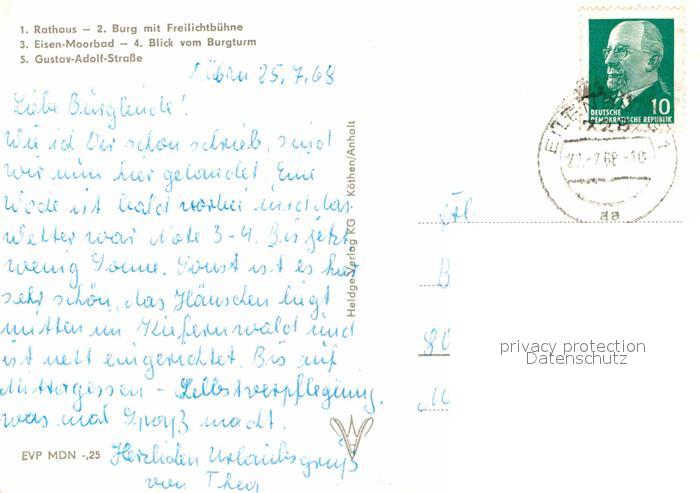 1. Rathaus – 2. Burg mit Freilichtbühne
3. Eisen-Moorbad – 4. Blick vom Burgturm
5. Gustav-Adolf-Straße
Düben 25.7.68
Liebe Burglinde!
Wie ich Dir schon schrieb, sind
wir nun hier gelandet. Eine
Woche ist bald vorbei und das
Wetter war Note 3-4. Bis jetzt
wenig Sonne. Sonst ist es hier
sehr schön, das Häuschen liegt
mitten im Kiefernwald und
ist nett eingerichtet. Bis auf
Mittagessen - Selbstverpflegung,
was mal Spaß macht.
Herzlichen Urlaubsgruß
von Thea
EVP MDN -,25
Heldge-Verlag KG Köthen/Anhalt
10
DEUTSCHE
DEMOKRATISCHE REPUBLIK
EILENBURG 1
-7.68-10
aa
Frl.
B
80
privacy protection
Datenschutz